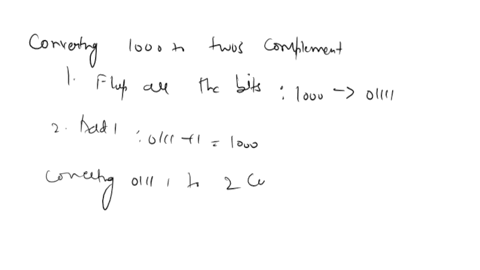 Converting 1000 to twos complement
1. Flip all the bits : 1000 -> 01111
2. Add 1 : 0111 +1 = 1000
Converting 0111 1 to 2 Co